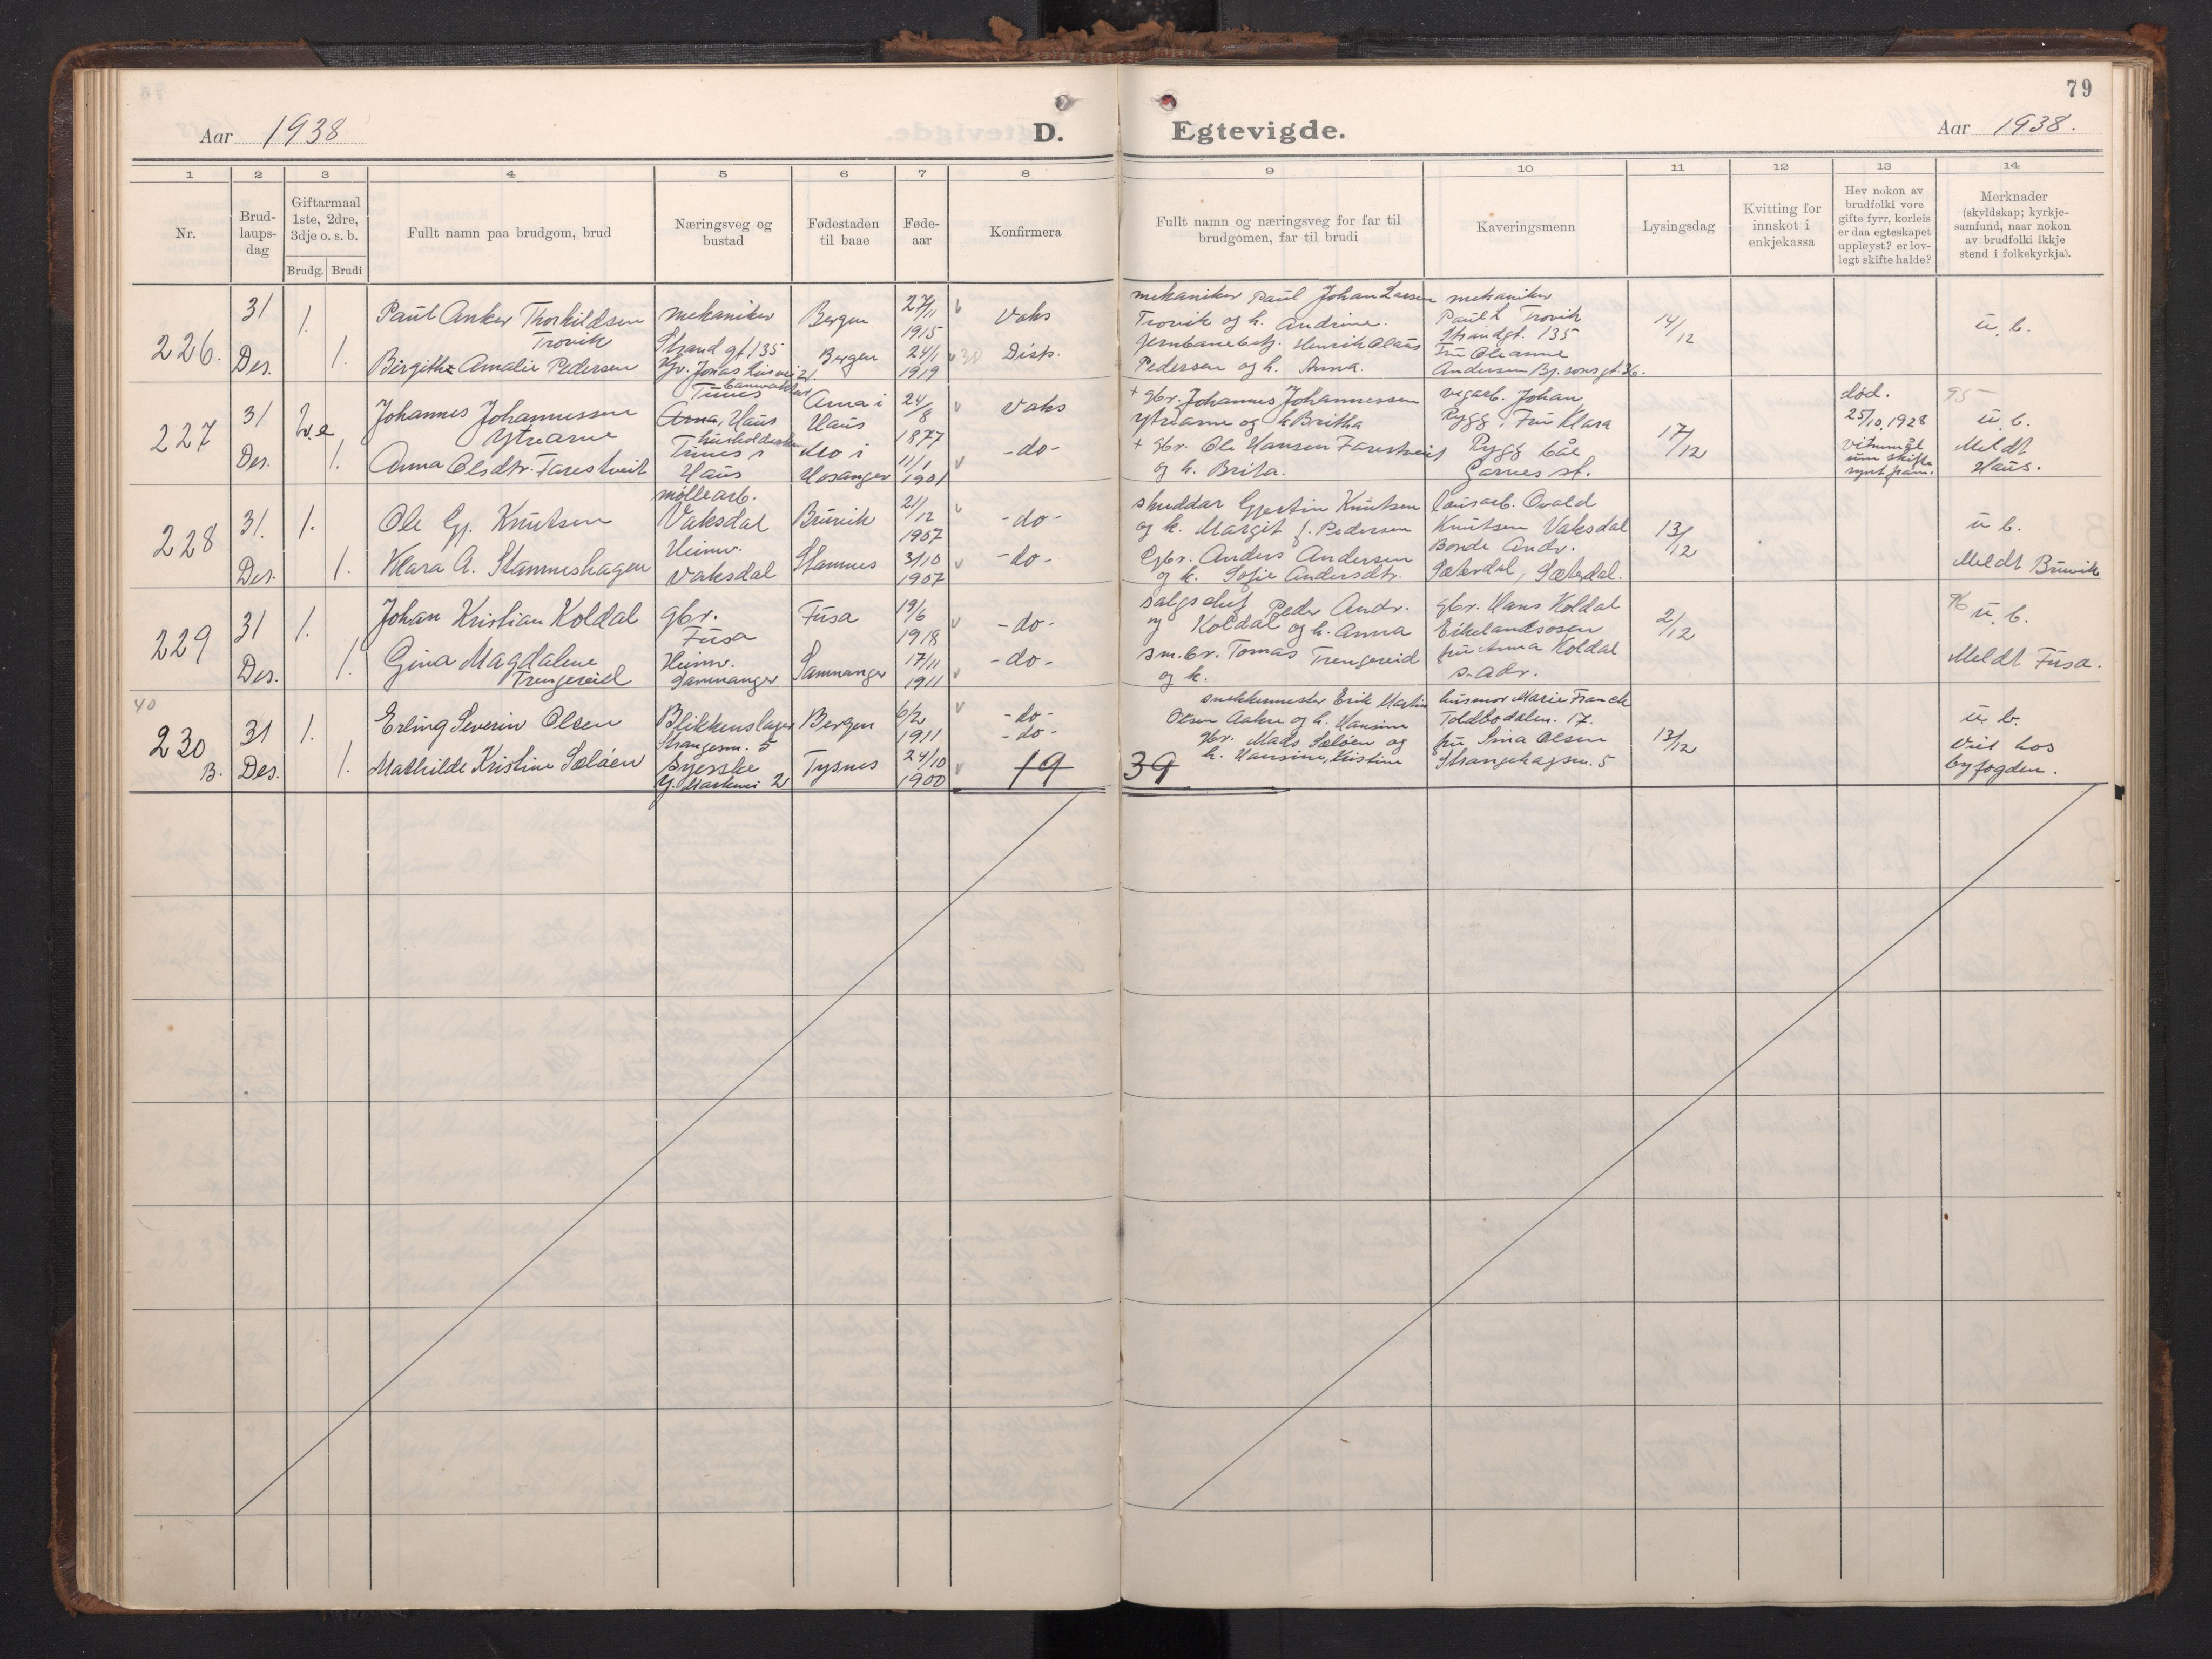 79
Aar 1938
D.
Egtevigde.
Aar 1938.
1 2 3 4 5 6 7 8 9 10 11 12 13 14
Nr.
Brud-
laups-
dag
Giftarmaal
1ste, 2dre,
3dje o. s. b.
Brudg. Brudi
Fullt namn paa brudgom, brud
Næringsveg og
bustad
Fødestaden
til baae
Føde-
aar
Konfirmera
Fullt namn og næringsveg for far til
brudgomen, far til brudi
Kaveringsmenn
Lysingsdag
Kvitting for
innskot i
enkjekassa
Hev nokon av
brudfolki vore
gifte fyrr, korleis
er daa egteskapet
uppløyst? er lov-
legt skifte halde?
Merknader
(skyldskap; kyrkje-
samfund, naar nokon
av brudfolki ikkje
stend i folkekyrkja).
226.
31
Des.
1.
1.
Paul Anker Thorkildsen
Trovik
Birgithe Amalie Pedersen
mekaniker
Strand gt 135
Bergen
Bergen
27/11
1915
24/1
1919
Vaks
30 Disp.
mekaniker Paul Johan Larsen
Trovik og h. Andrine.
Jernbanebetj. Henrik Olaus
Pedersen og h. Anna.
mekaniker
Paul L Trovik
Strandgt. 135
Fru Oleanne
Andersen
14/12
u. b.
227
31
Des.
2.
1.
Johannes Johannessen
Ytrearne
Anna Olsdtr. Farestveit
Tunes
Arna, Haus
Tunes i
Haus
Arna i
Haus
Mo i
Hosanger
24/8
1877
11/1
1901
Vaks
-do-
+ gbr. Johannes Johannessen
Ytrearne og h Britha
+ gbr. Ole Hansen Farestveit
og h. Brita.
vegarb. Johan
Rygg, Fru Klara
Rygg båe
Garnes st.
17/12
død.
25/10.1928
Vitnemål
um skifte
synt fram.
95
u. b.
Meldt
Haus.
228
31.
Des.
1.
1.
Ole Gj. Knutsen
Klara A. Stamneshagen
møllearb.
Vaksdal
Heimv.
Vaksdal
Bruvik
Stamnes
21/12
1907
3/10
1907
-do-
-do-
skuddar Gjertin Knutsen
og k. Margit f. Pedersen
Gbr. Anders Andersen
og k. Sofie Andersdtr.
Knutsen Vaksdal
Bonde Andr.
Sæterdal, Sæterdal.
13/12
u b.
Meldt Bruvik
229
31
Des.
1.
1.
Johan Kristian Koldal
Gina Magdalene
Trengereid
gbr.
Fusa
Heimv.
Samnanger
Fusa
Samnanger
19/6
1918
17/11
1911
-do-
-do-
Peder Andr.
Koldal og h. Anna
sm.br. Tomas Trengereid
og k.
gbr. Hans Koldal
Eikelandsosen
fru Anna Koldal
s. adr.
2/12
96
u. b.
Meldt Fusa.
40
230
B.
31
Des.
1.
1.
Erling Severin Olsen
Mathilde Kristine Sæløen
Blikkenslager
Strangesm. 5
Syerske
Bergen
Tysnes
6/2
1911
24/10
1900
-do-
-do-
19
snekkermester Erik Martin
Olsen Aakre og h. Hansine
gbr. Mads Sæløen og
h. Hansine, Kristine
39
husmor Marie Franck
Toldbodalm. 17.
fru Sina Olsen
Strangehagen. 5
13/12
u. b.
Viet hos
byfogden.